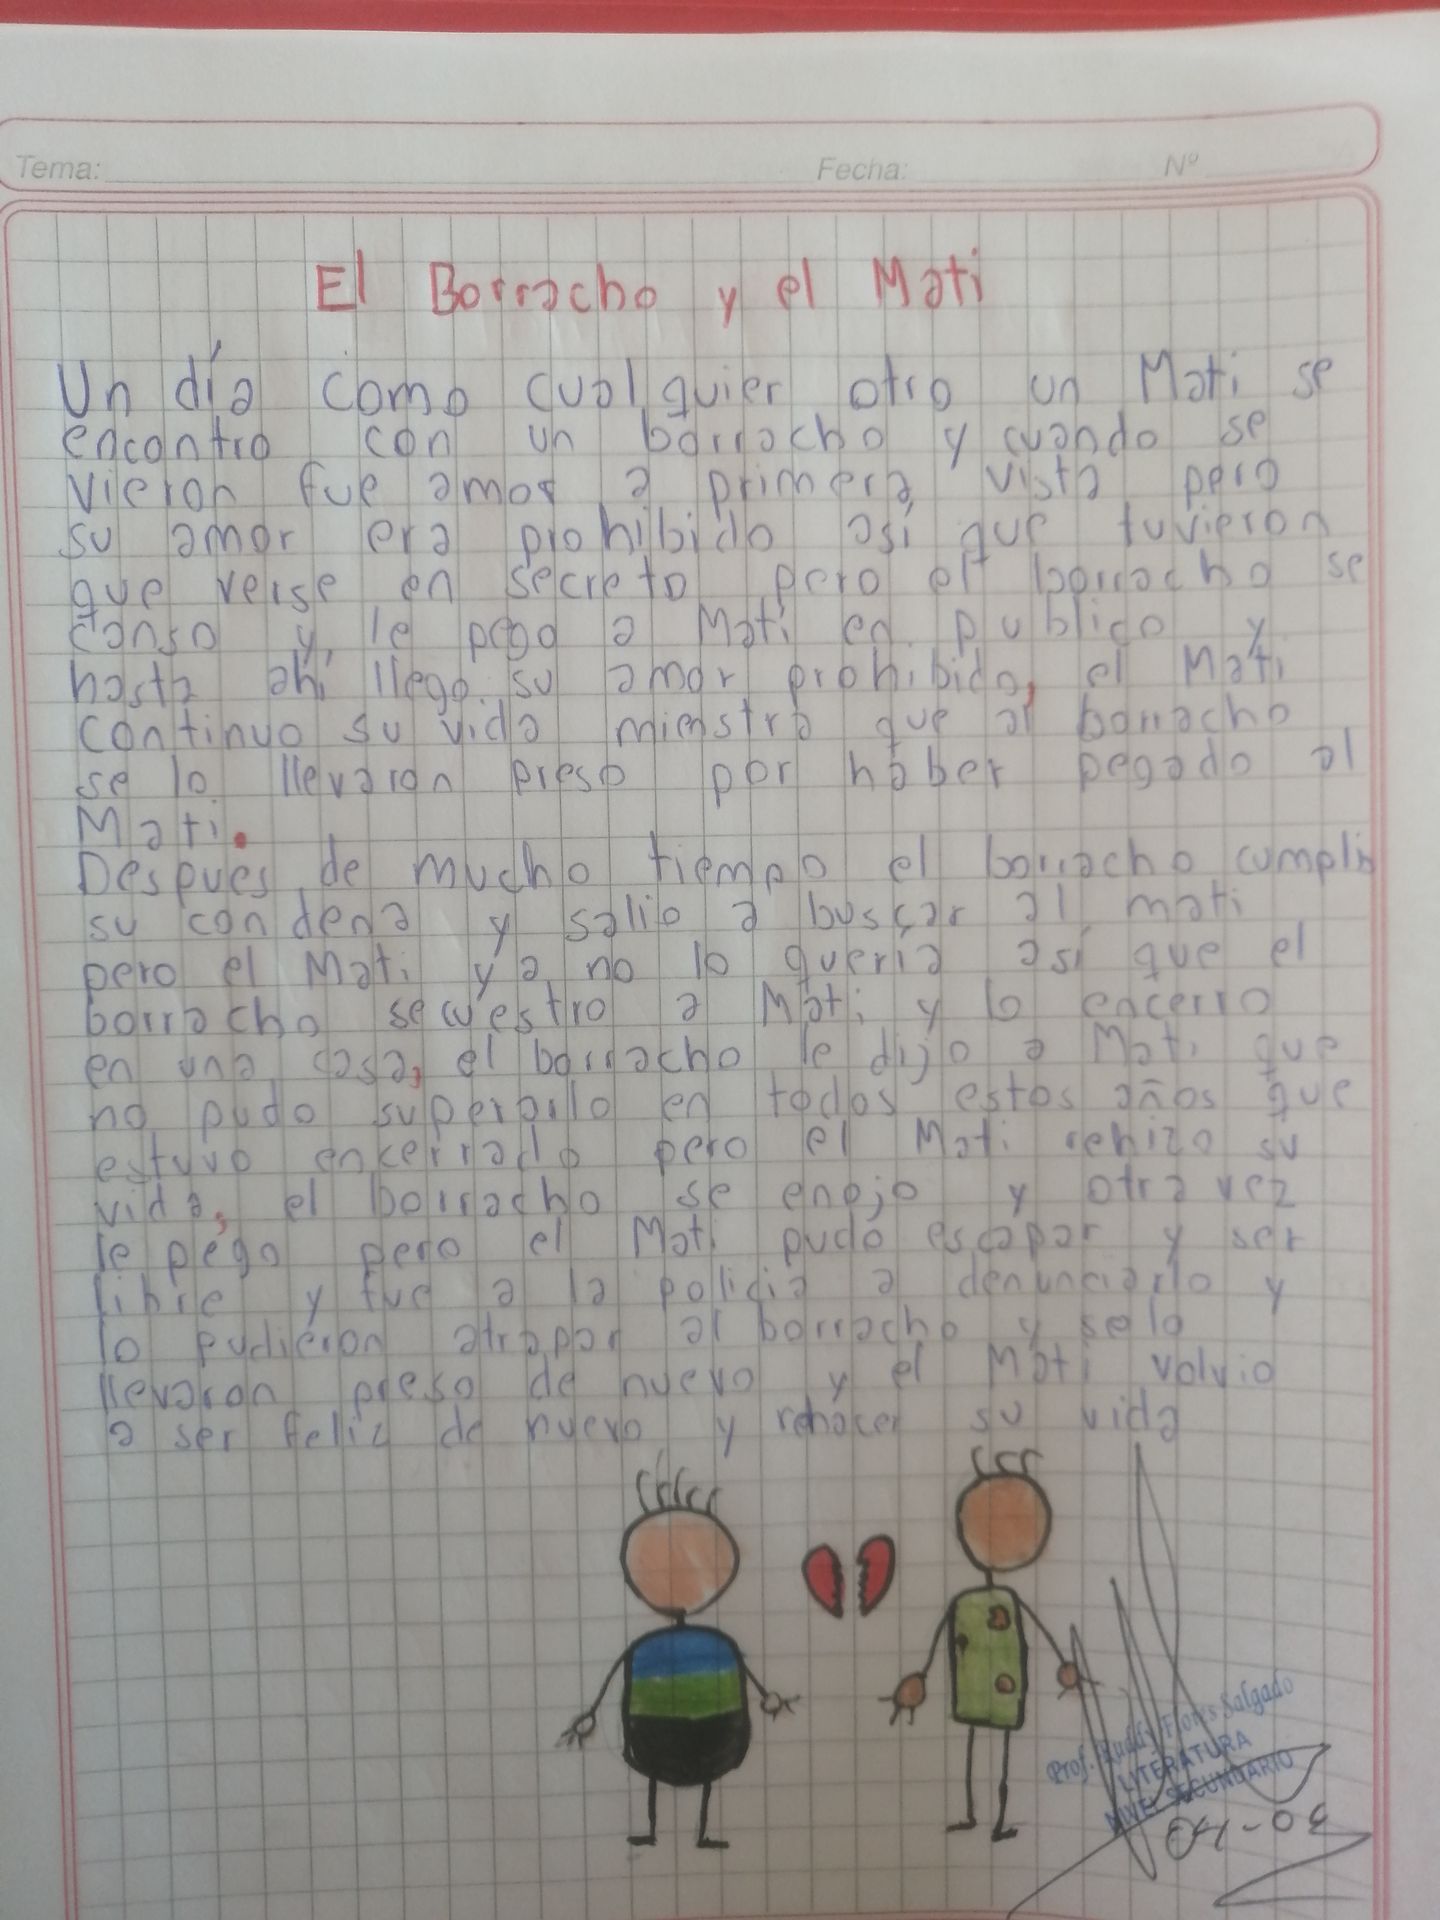 Tema:
Fecha:
Nº
El Borracho y el Mati
Un día como cualquier otro un Mati se
encontro con un borracho y cuando se
vieron fue amor a primera vista pero
su amor era prohibido asi que tuvieron
que verse en secreto pero el borracho se
canso y le pego a Mati en publico y
hasta ahi llego su amor prohibido, el Mati
continuo su vida mienstra que al borracho
se lo llevaron preso por haber pegado al
Mati.
Despues de mucho tiempo el borracho cumplio
su condena y salio a buscar al mati
pero el Mati ya no lo queria asi que el
borracho secuestro a Mati y lo encerro
en una casa, el borracho le dijo a Mati que
no pudo superarlo en todos estos años que
estuvo enkerrado pero el Mati rehizo su
vida, el borracho se enojo y otra vez
le pego pero el Mati pudo escapar y ser
libre y fue a la policia a denunciarlo y
lo pudieron atrapar al borracho y selo
llevaron preso de nuevo y el Mati volvio
a ser feliz de nuevo y rehacer su vida
Prof. Ruddy Flores Salgado
LITERATURA
NIVEL SECUNDARIO